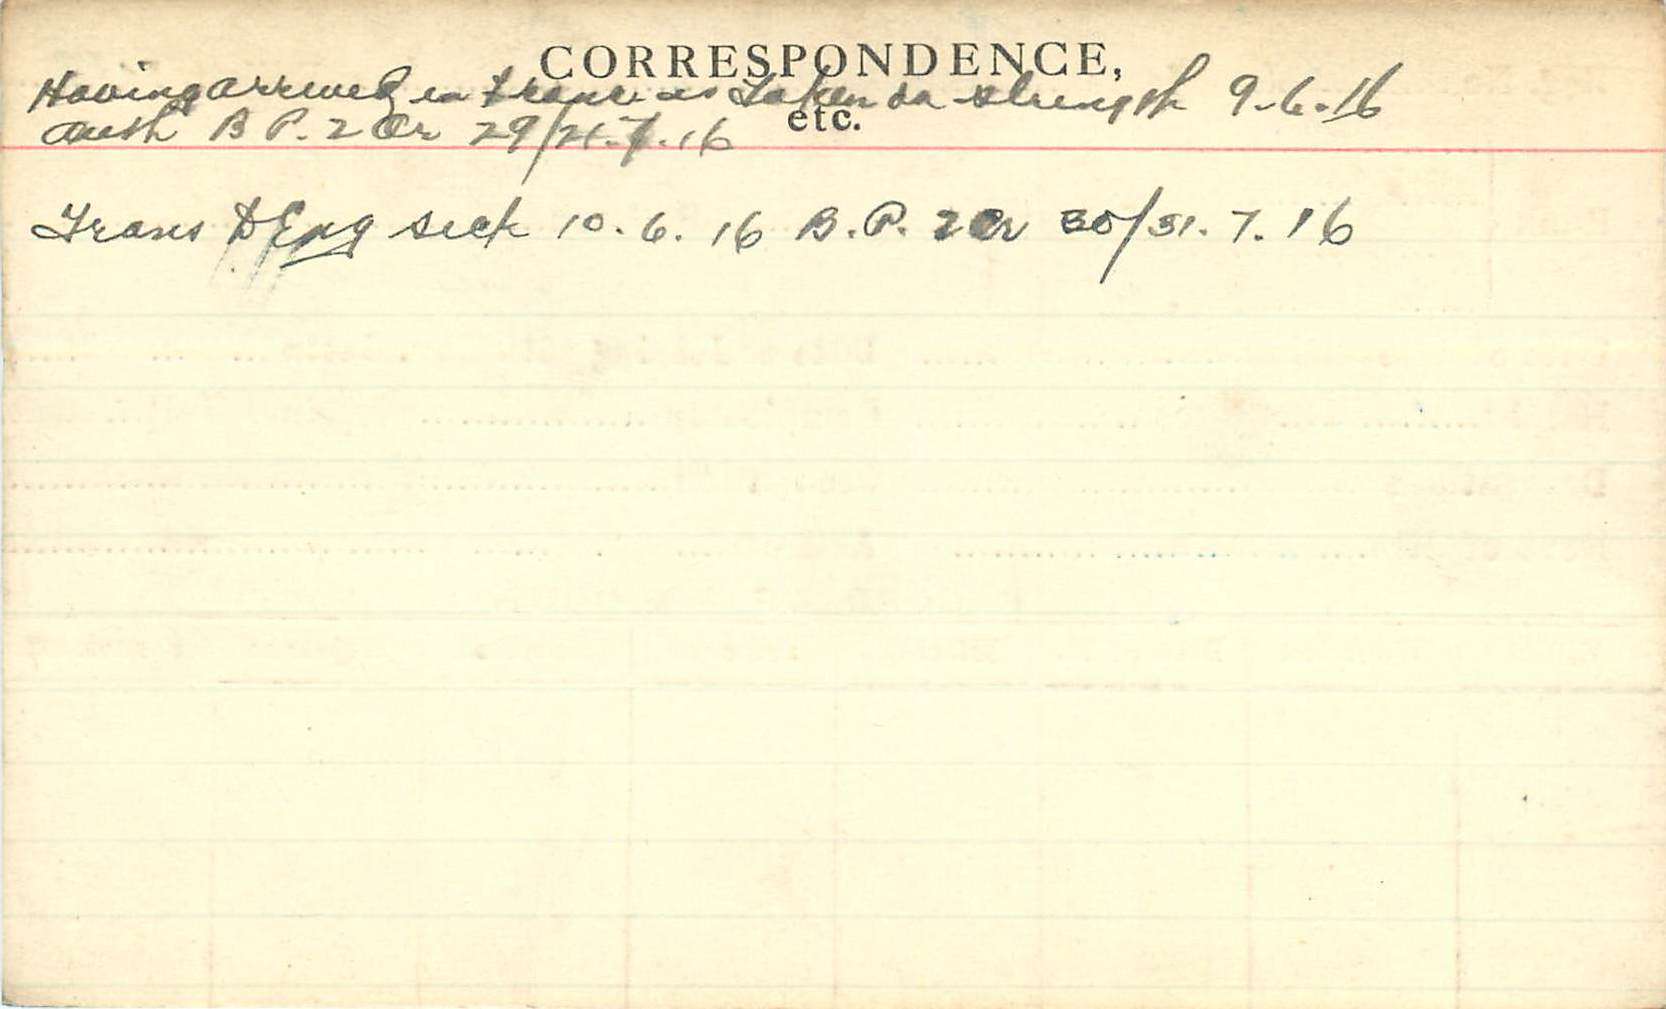 CORRESPONDENCE,
etc.
Having arrived in France is Taken on strength 9-6-16
Auth B P. 2 Or 29/21.7.16
Trans to Eng sick 10.6.16 B.P. 2 Or 30/31.7.16